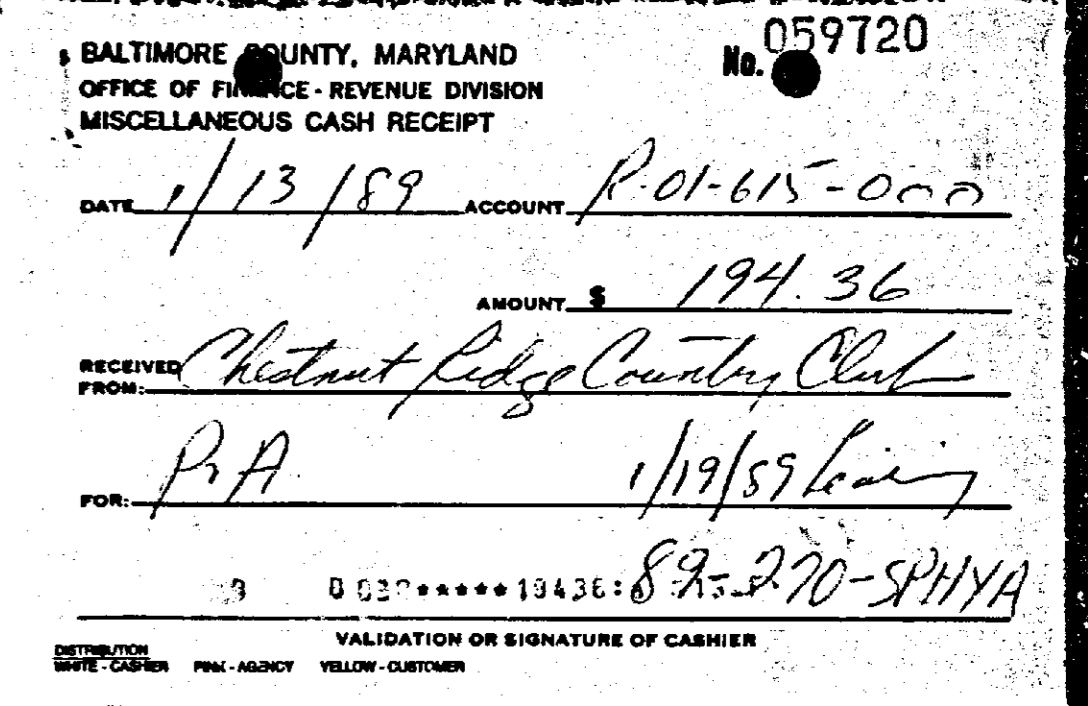 No. 059720
BALTIMORE COUNTY, MARYLAND
OFFICE OF FINANCE - REVENUE DIVISION
MISCELLANEOUS CASH RECEIPT
DATE 1/13/89 ACCOUNT R-01-615-000
AMOUNT $ 194.36
RECEIVED FROM: Chestnut Ridge Country Club
FOR: P&A 1/19/89 Hearing
*****19436: 89-270-SPHXA
VALIDATION OR SIGNATURE OF CASHIER
DISTRIBUTION
WHITE - CASHIER PINK - AGENCY YELLOW - CUSTOMER